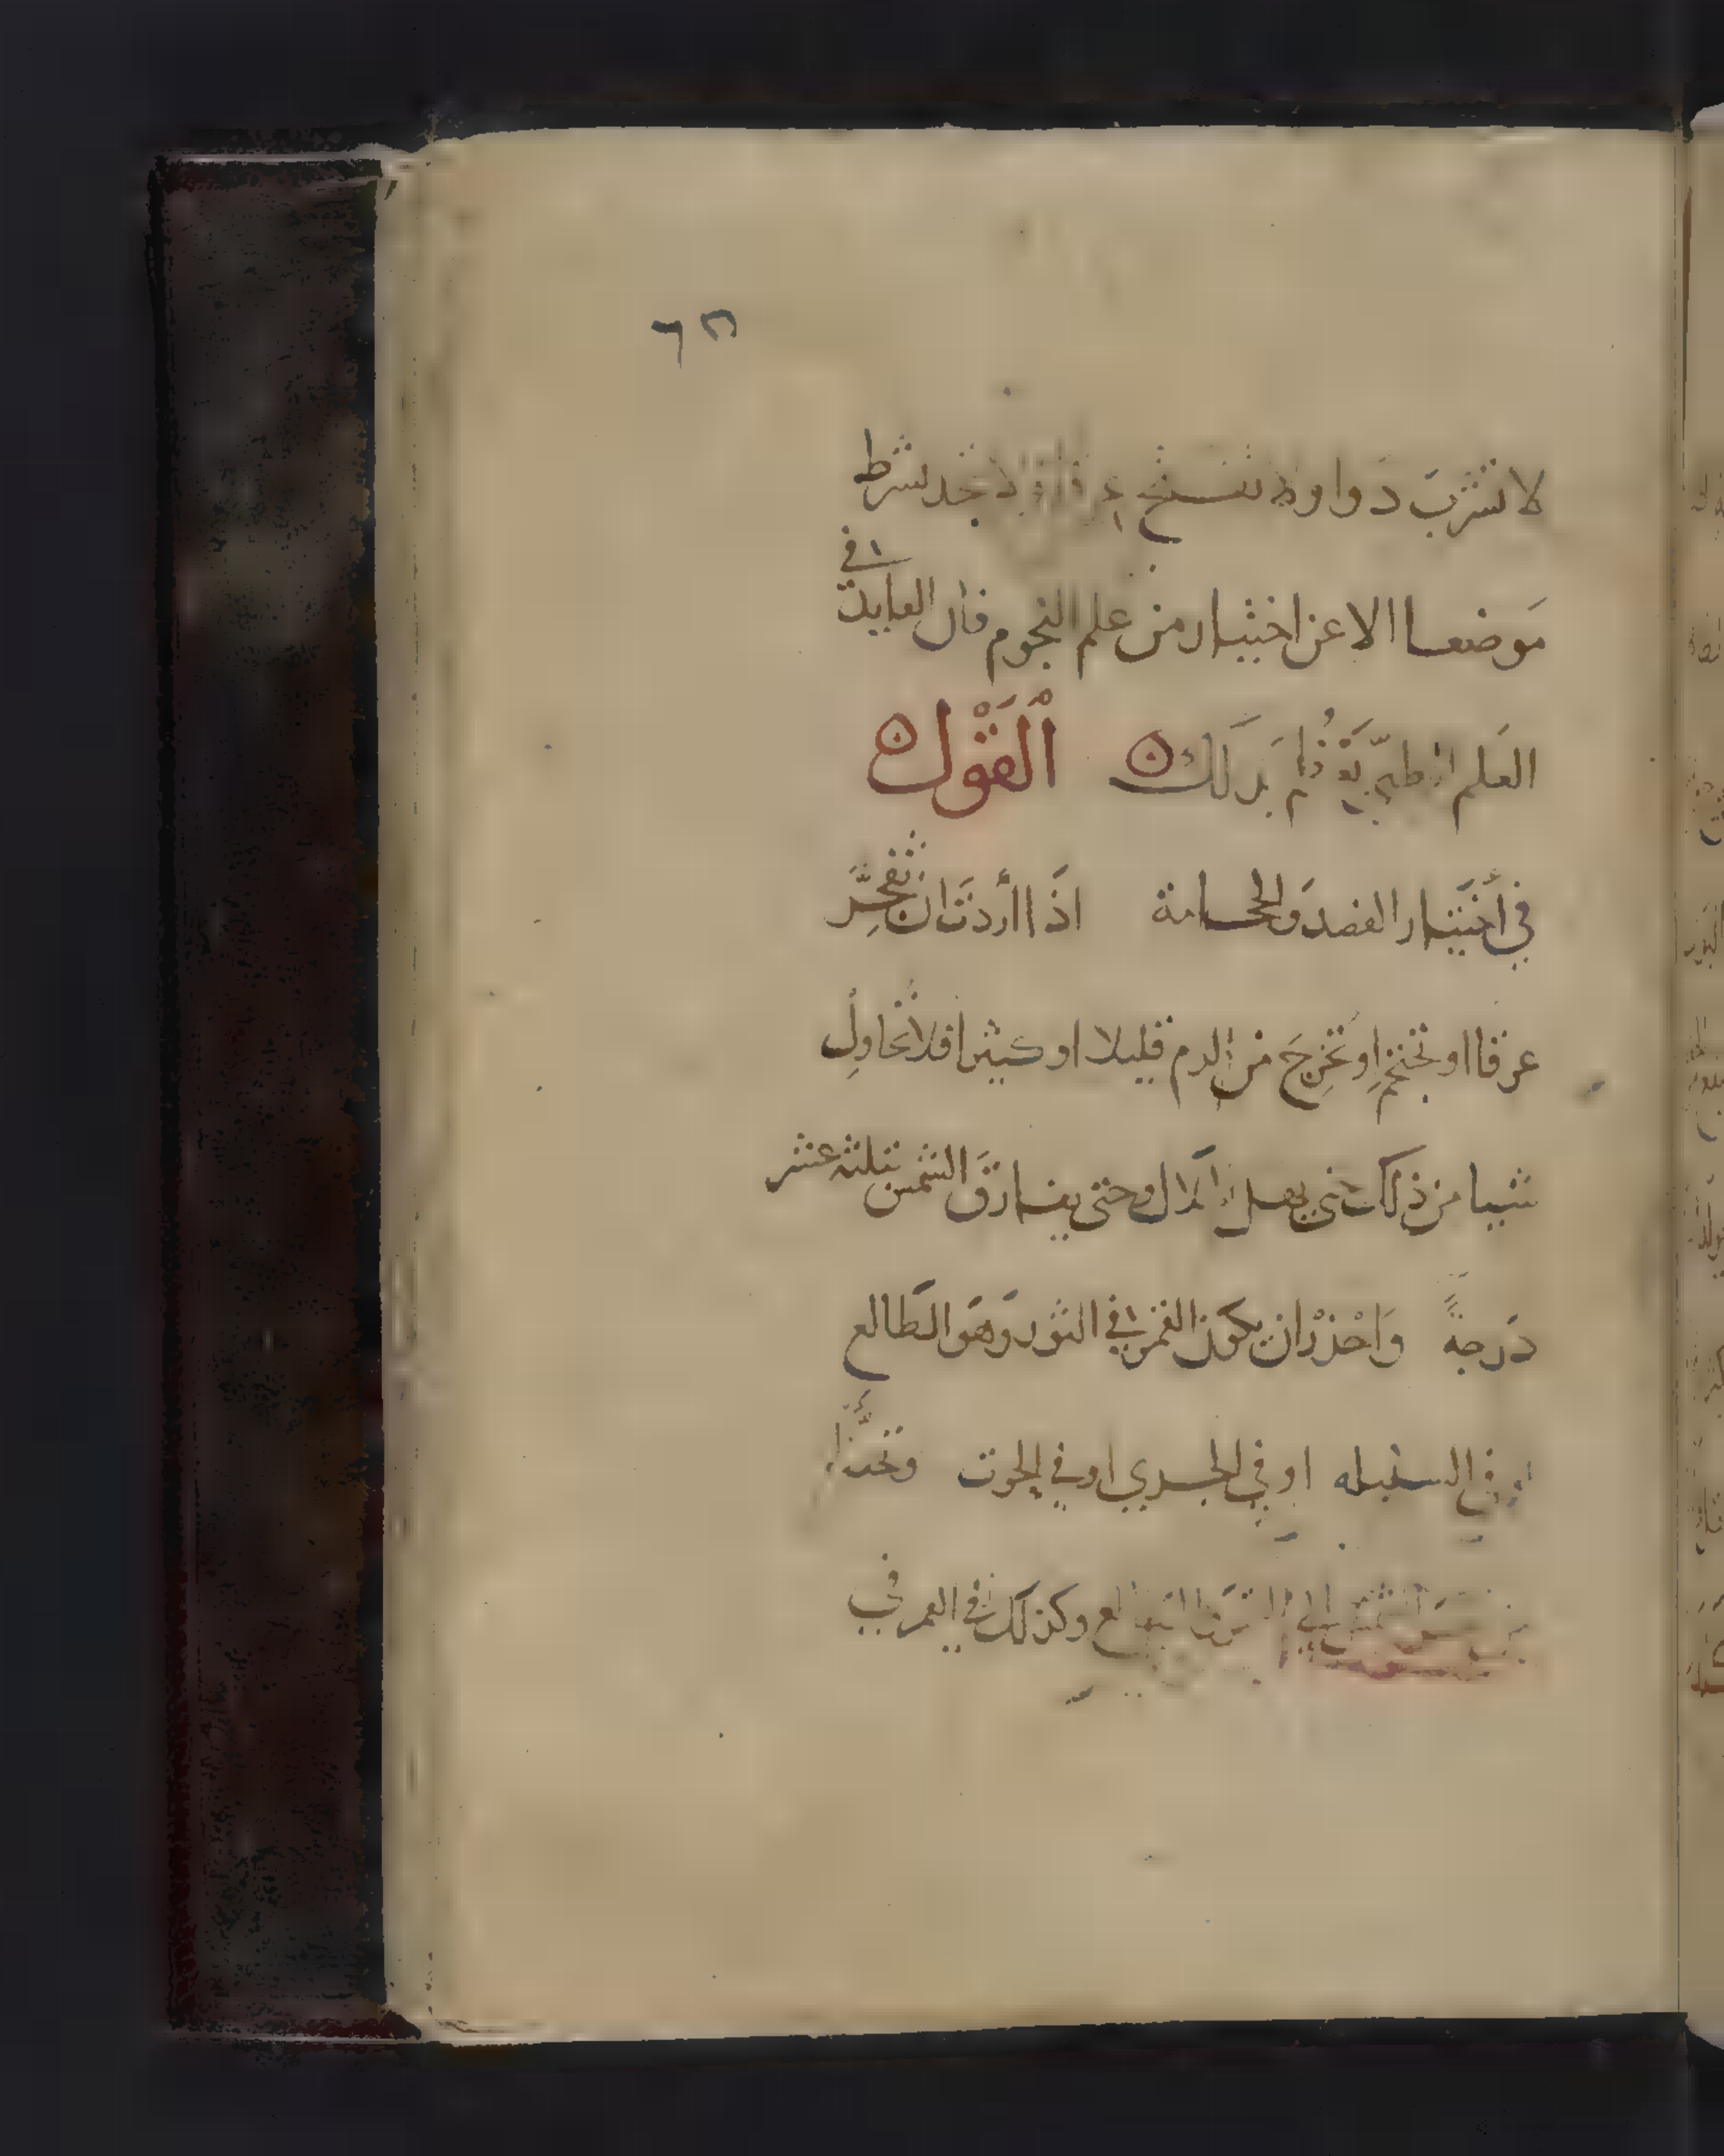 لا تشرب دوا ولا تفسخ عرقا ولا تجد شرط
موضعا الا عن اختيار من علم النجوم فان الفايدة في
العلم الطبي بذلك ۞ اَلْقَوْل ۞
في اختيار الفصد والحجامة اذا أردت ان تفجر
عرقا او تحتجم او تخرج من الدم قليلا او كثيرا فلا تحاول
شيا من ذلك حتى الهلال وحتى يفارق الشمس ثلثه عشر
درجة واحذر ان يكون القمر في الثور وهو الطالع
او في السنبله او في الجدي او في الحوت
الشمس الى وكذلك في القمر في